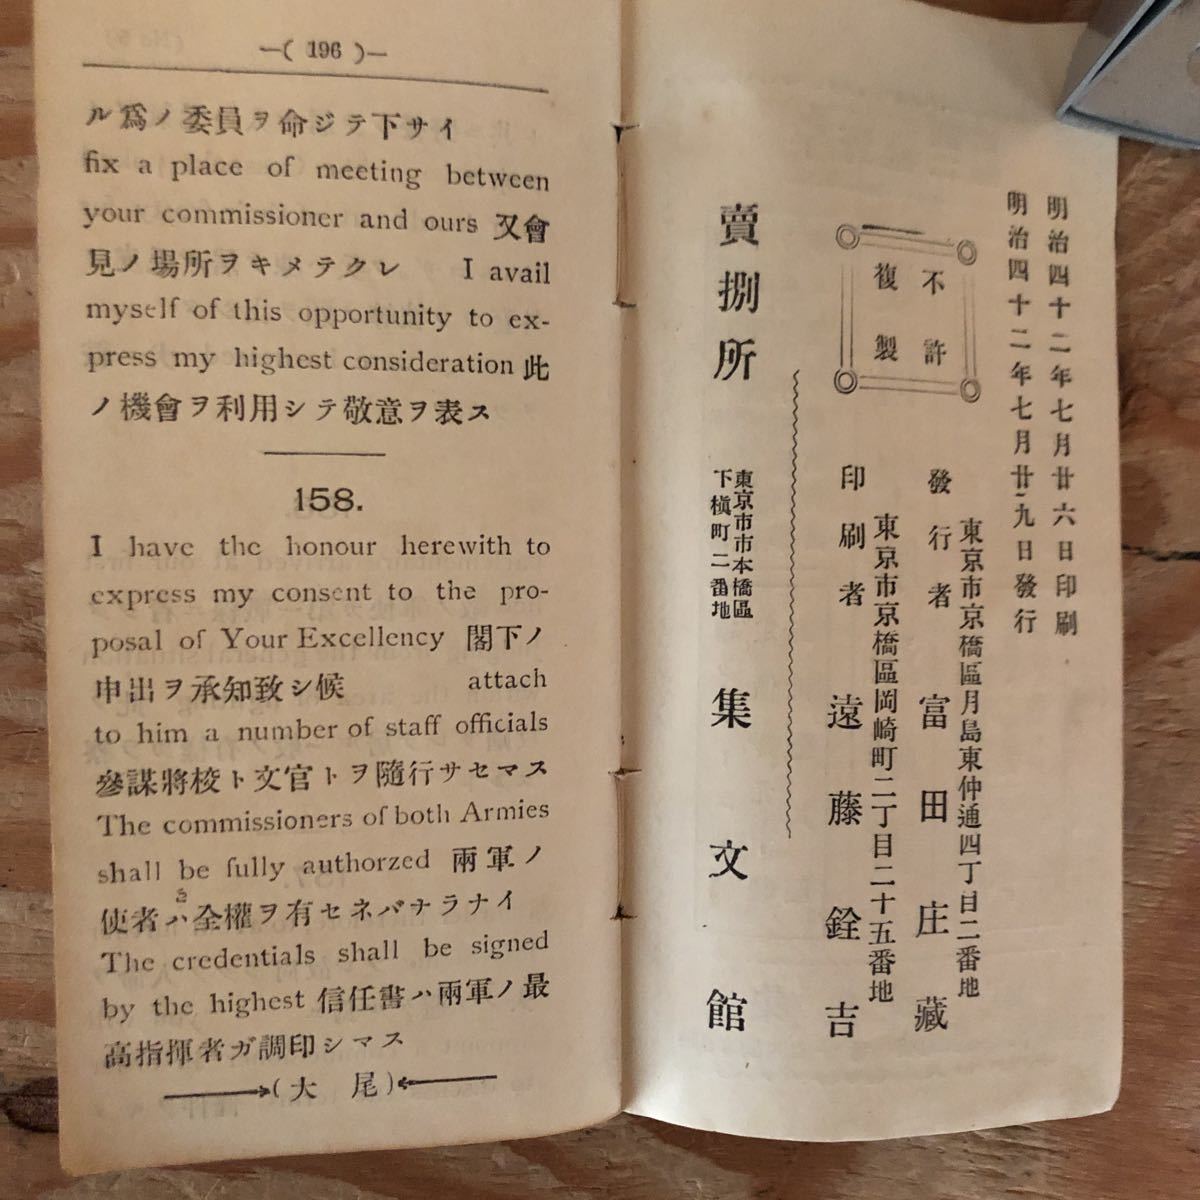 —( 196 )—
ル爲ノ委員ヲ命ジテ下サイ
fix a place of meeting between
your commissioner and ours 又會
見ノ場所ヲキメテクレ I avail
myself of this opportunity to ex-
press my highest consideration 此
ノ機會ヲ利用シテ敬意ヲ表ス
158.
I have the honour herewith to
express my consent to the pro-
posal of Your Excellency 閣下ノ
申出ヲ承知致シ候 attach
to him a number of staff officials
參謀將校ト文官トヲ隨行サセマス
The commissioners of both Armies
shall be fully authorzed 兩軍ノ
使者ハ全權ヲ有セネバナラナイ
The credentials shall be signed
by the highest 信任書ハ兩軍ノ最
高指揮者ガ調印シマス
(大尾)
明治四十二年七月廿六日印刷
明治四十二年七月廿九日發行
不許
複製
東京市京橋區月島東仲通四丁目二番地
發行者 富田庄藏
東京市京橋區岡崎町二丁目二十五番地
印刷者 遠藤銓吉
東京市市本橋區
下槇町二番地
賣捌所 集文館